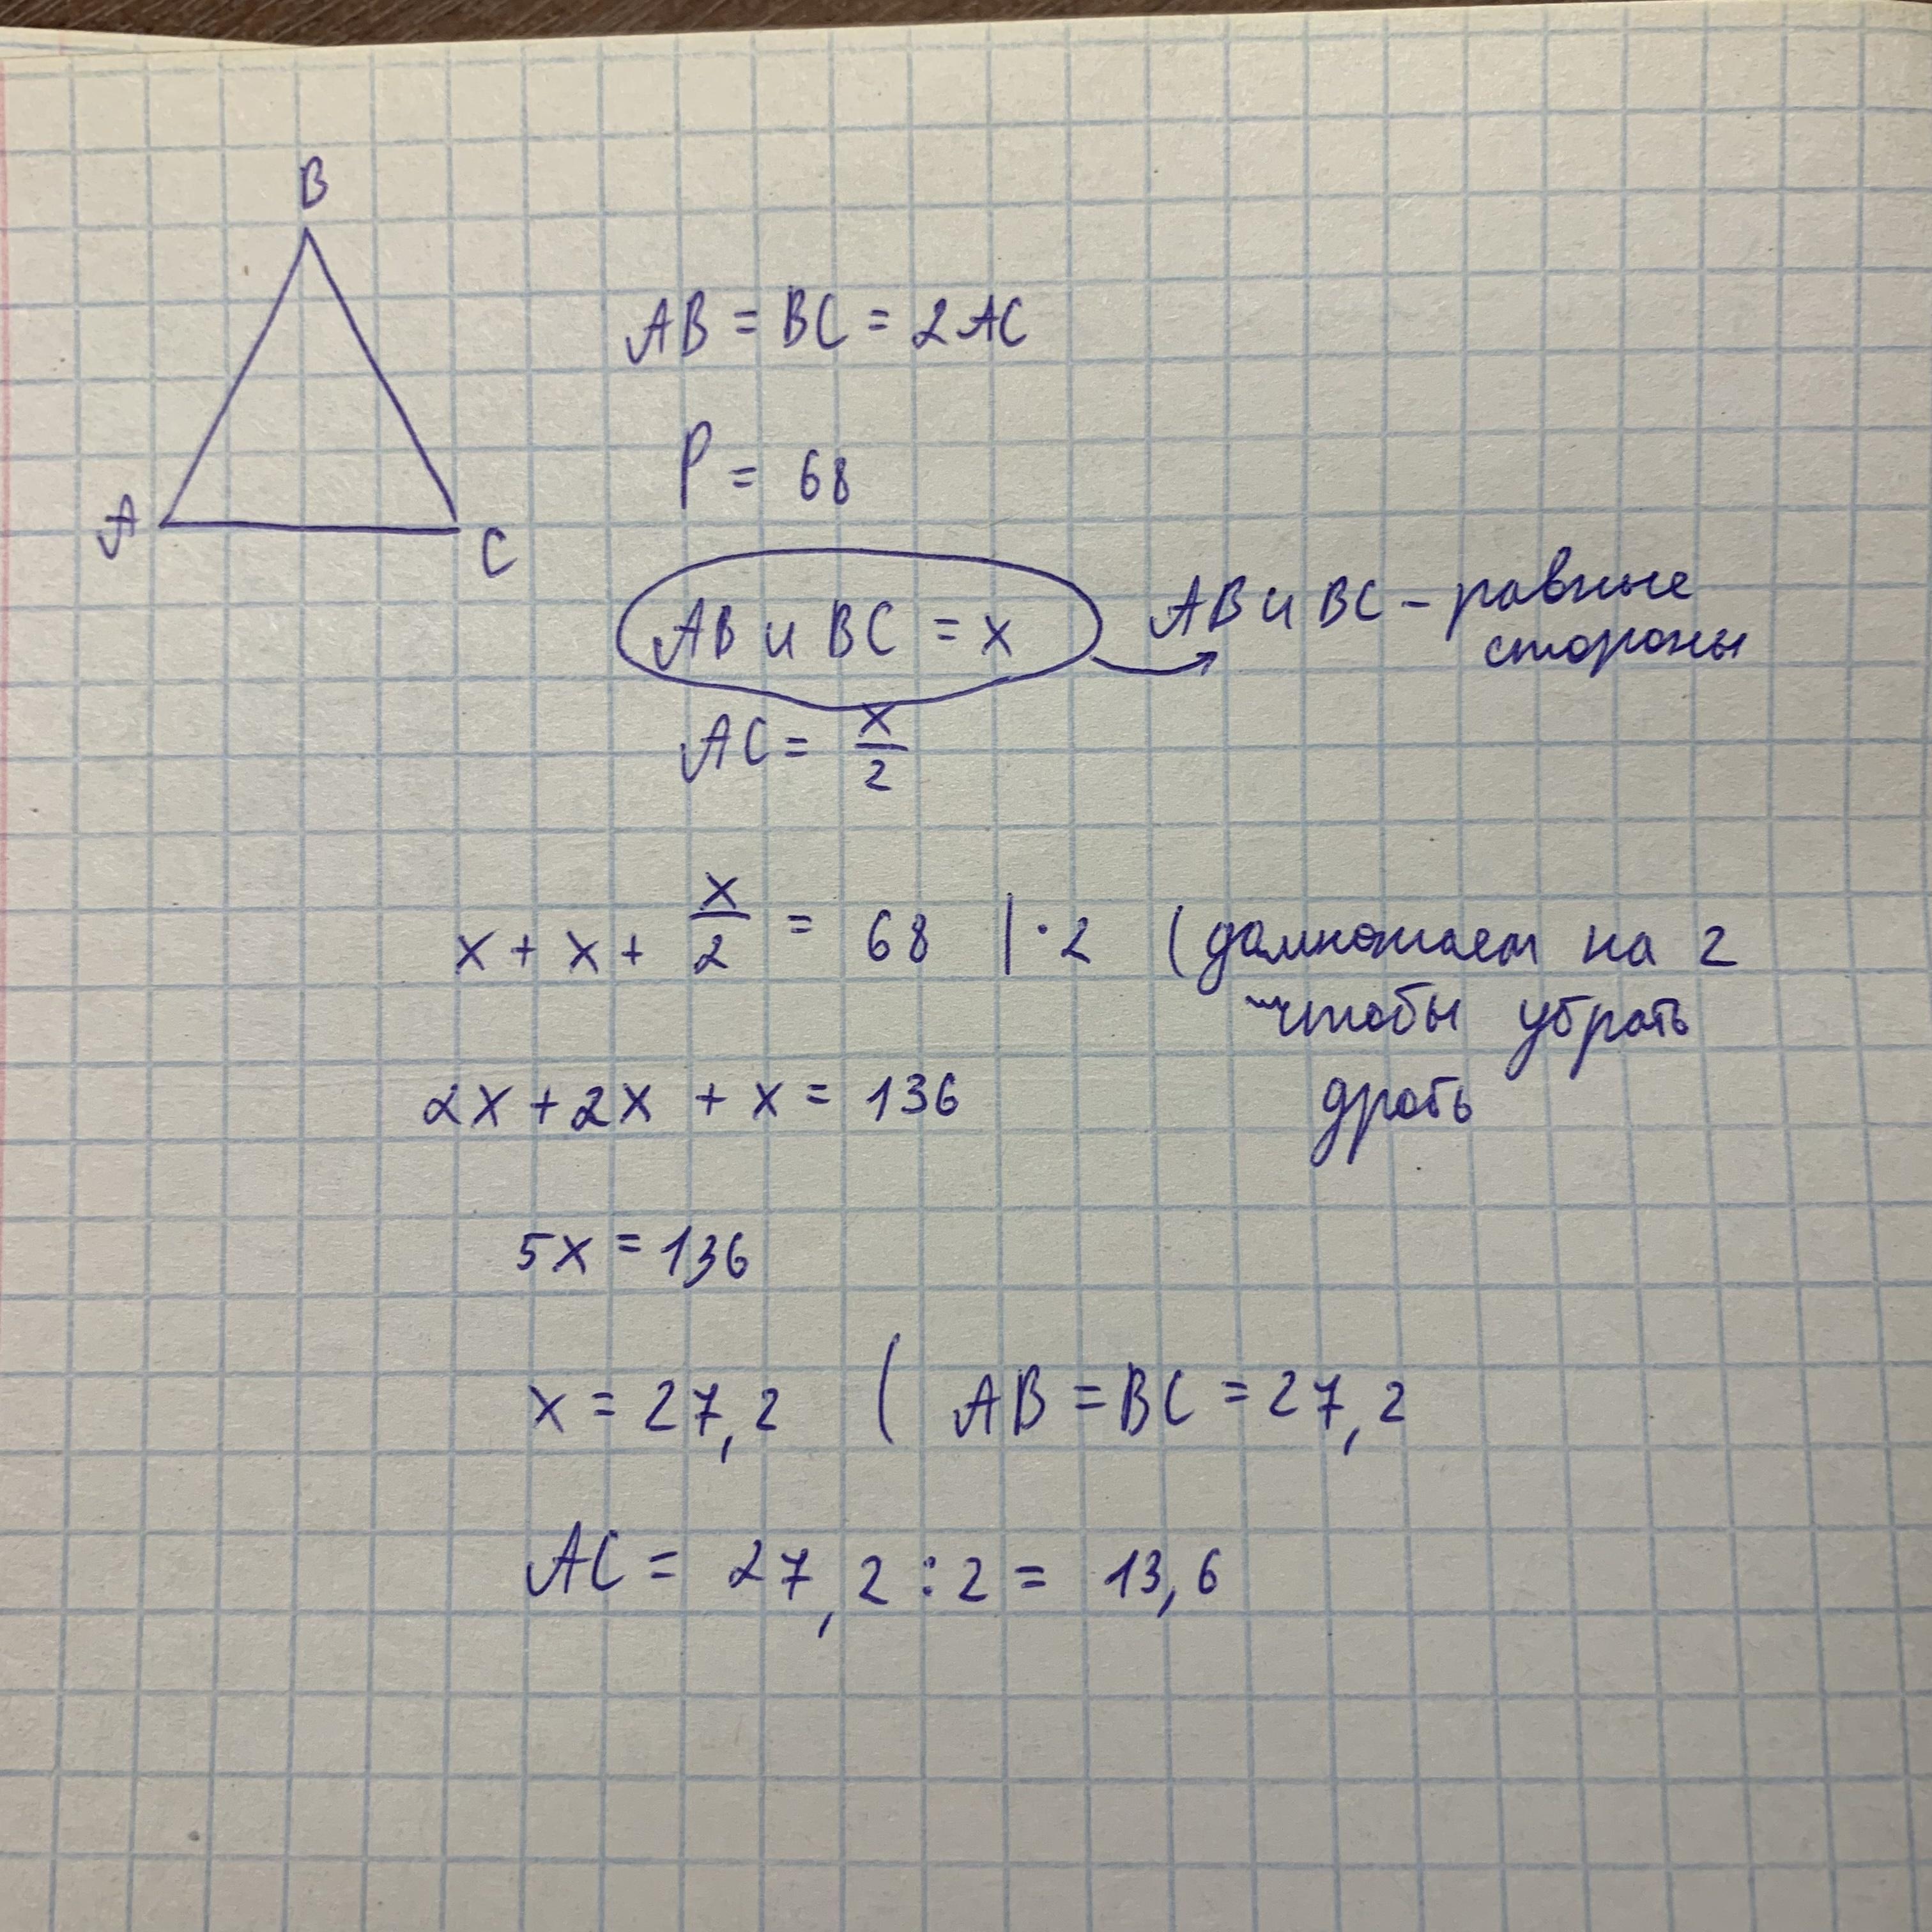 B
A
C
AB = BC = 2AC
P = 68
AB и BC = x
AB и BC - равные
стороны
AC = x/2
x + x + x/2 = 68 | · 2 (домножаем на 2
чтобы убрать
дробь
2x + 2x + x = 136
5x = 136
x = 27,2 ( AB = BC = 27,2
AC = 27,2 : 2 = 13,6